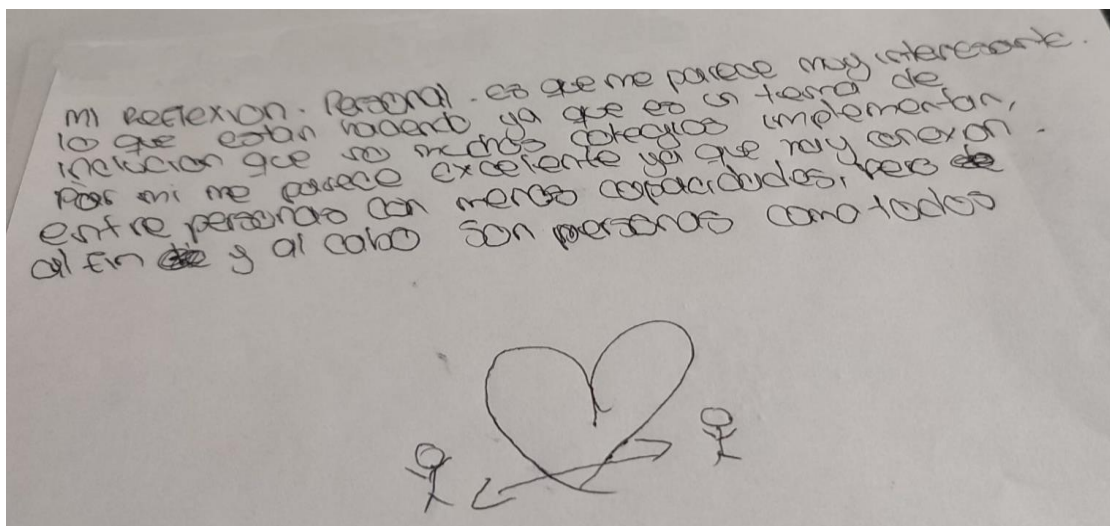 mi Reflexion. Personal. es que me parece muy interesante.
lo que estan haciendo ya que es un tema de
inclucion que no muchos colegios implementan,
Por mi me parece excelente ya que hay conexon.
entre personas con menos capacidades, pero
al fin y al cabo son personas como todos